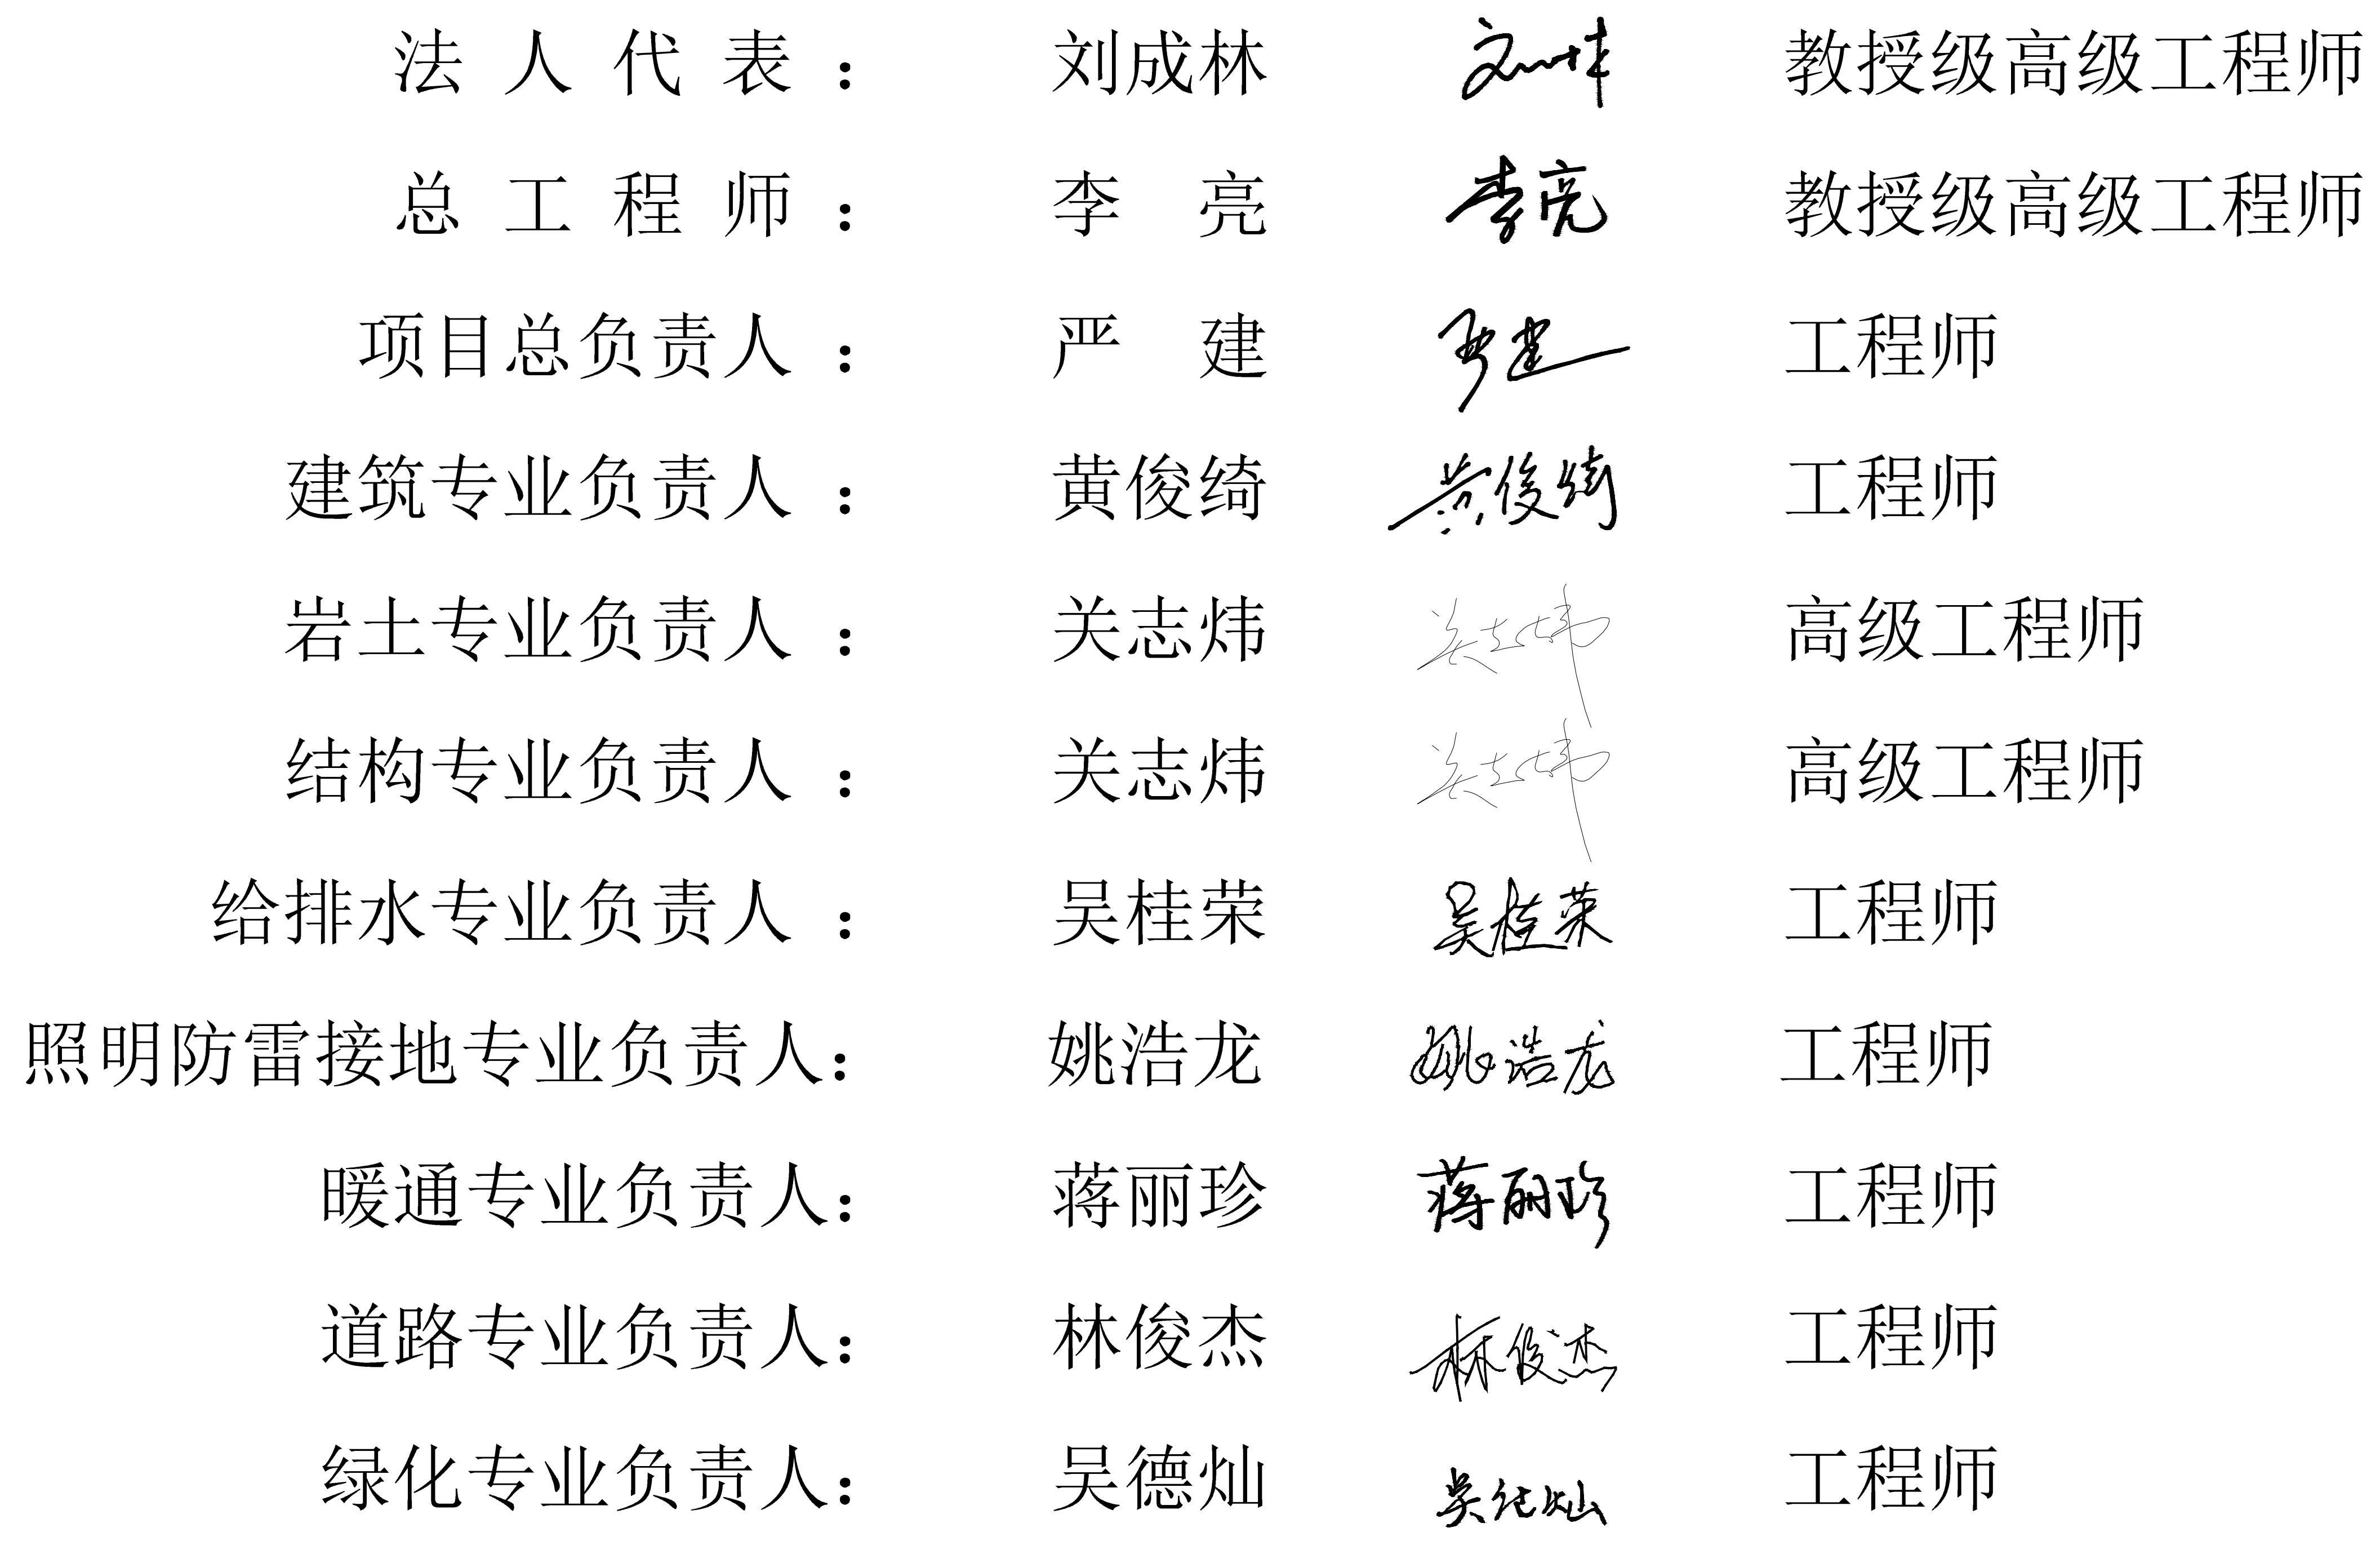 法人代表： 刘成林 教授级高级工程师
总工程师： 李亮 李亮 教授级高级工程师
项目总负责人： 严建 严建 工程师
建筑专业负责人： 黄俊绮 黄俊绮 工程师
岩土专业负责人： 关志炜 关志炜 高级工程师
结构专业负责人： 关志炜 关志炜 高级工程师
给排水专业负责人： 吴桂荣 吴桂荣 工程师
照明防雷接地专业负责人： 姚浩龙 姚浩龙 工程师
暖通专业负责人： 蒋丽珍 蒋丽珍 工程师
道路专业负责人： 林俊杰 林俊杰 工程师
绿化专业负责人： 吴德灿 吴德灿 工程师